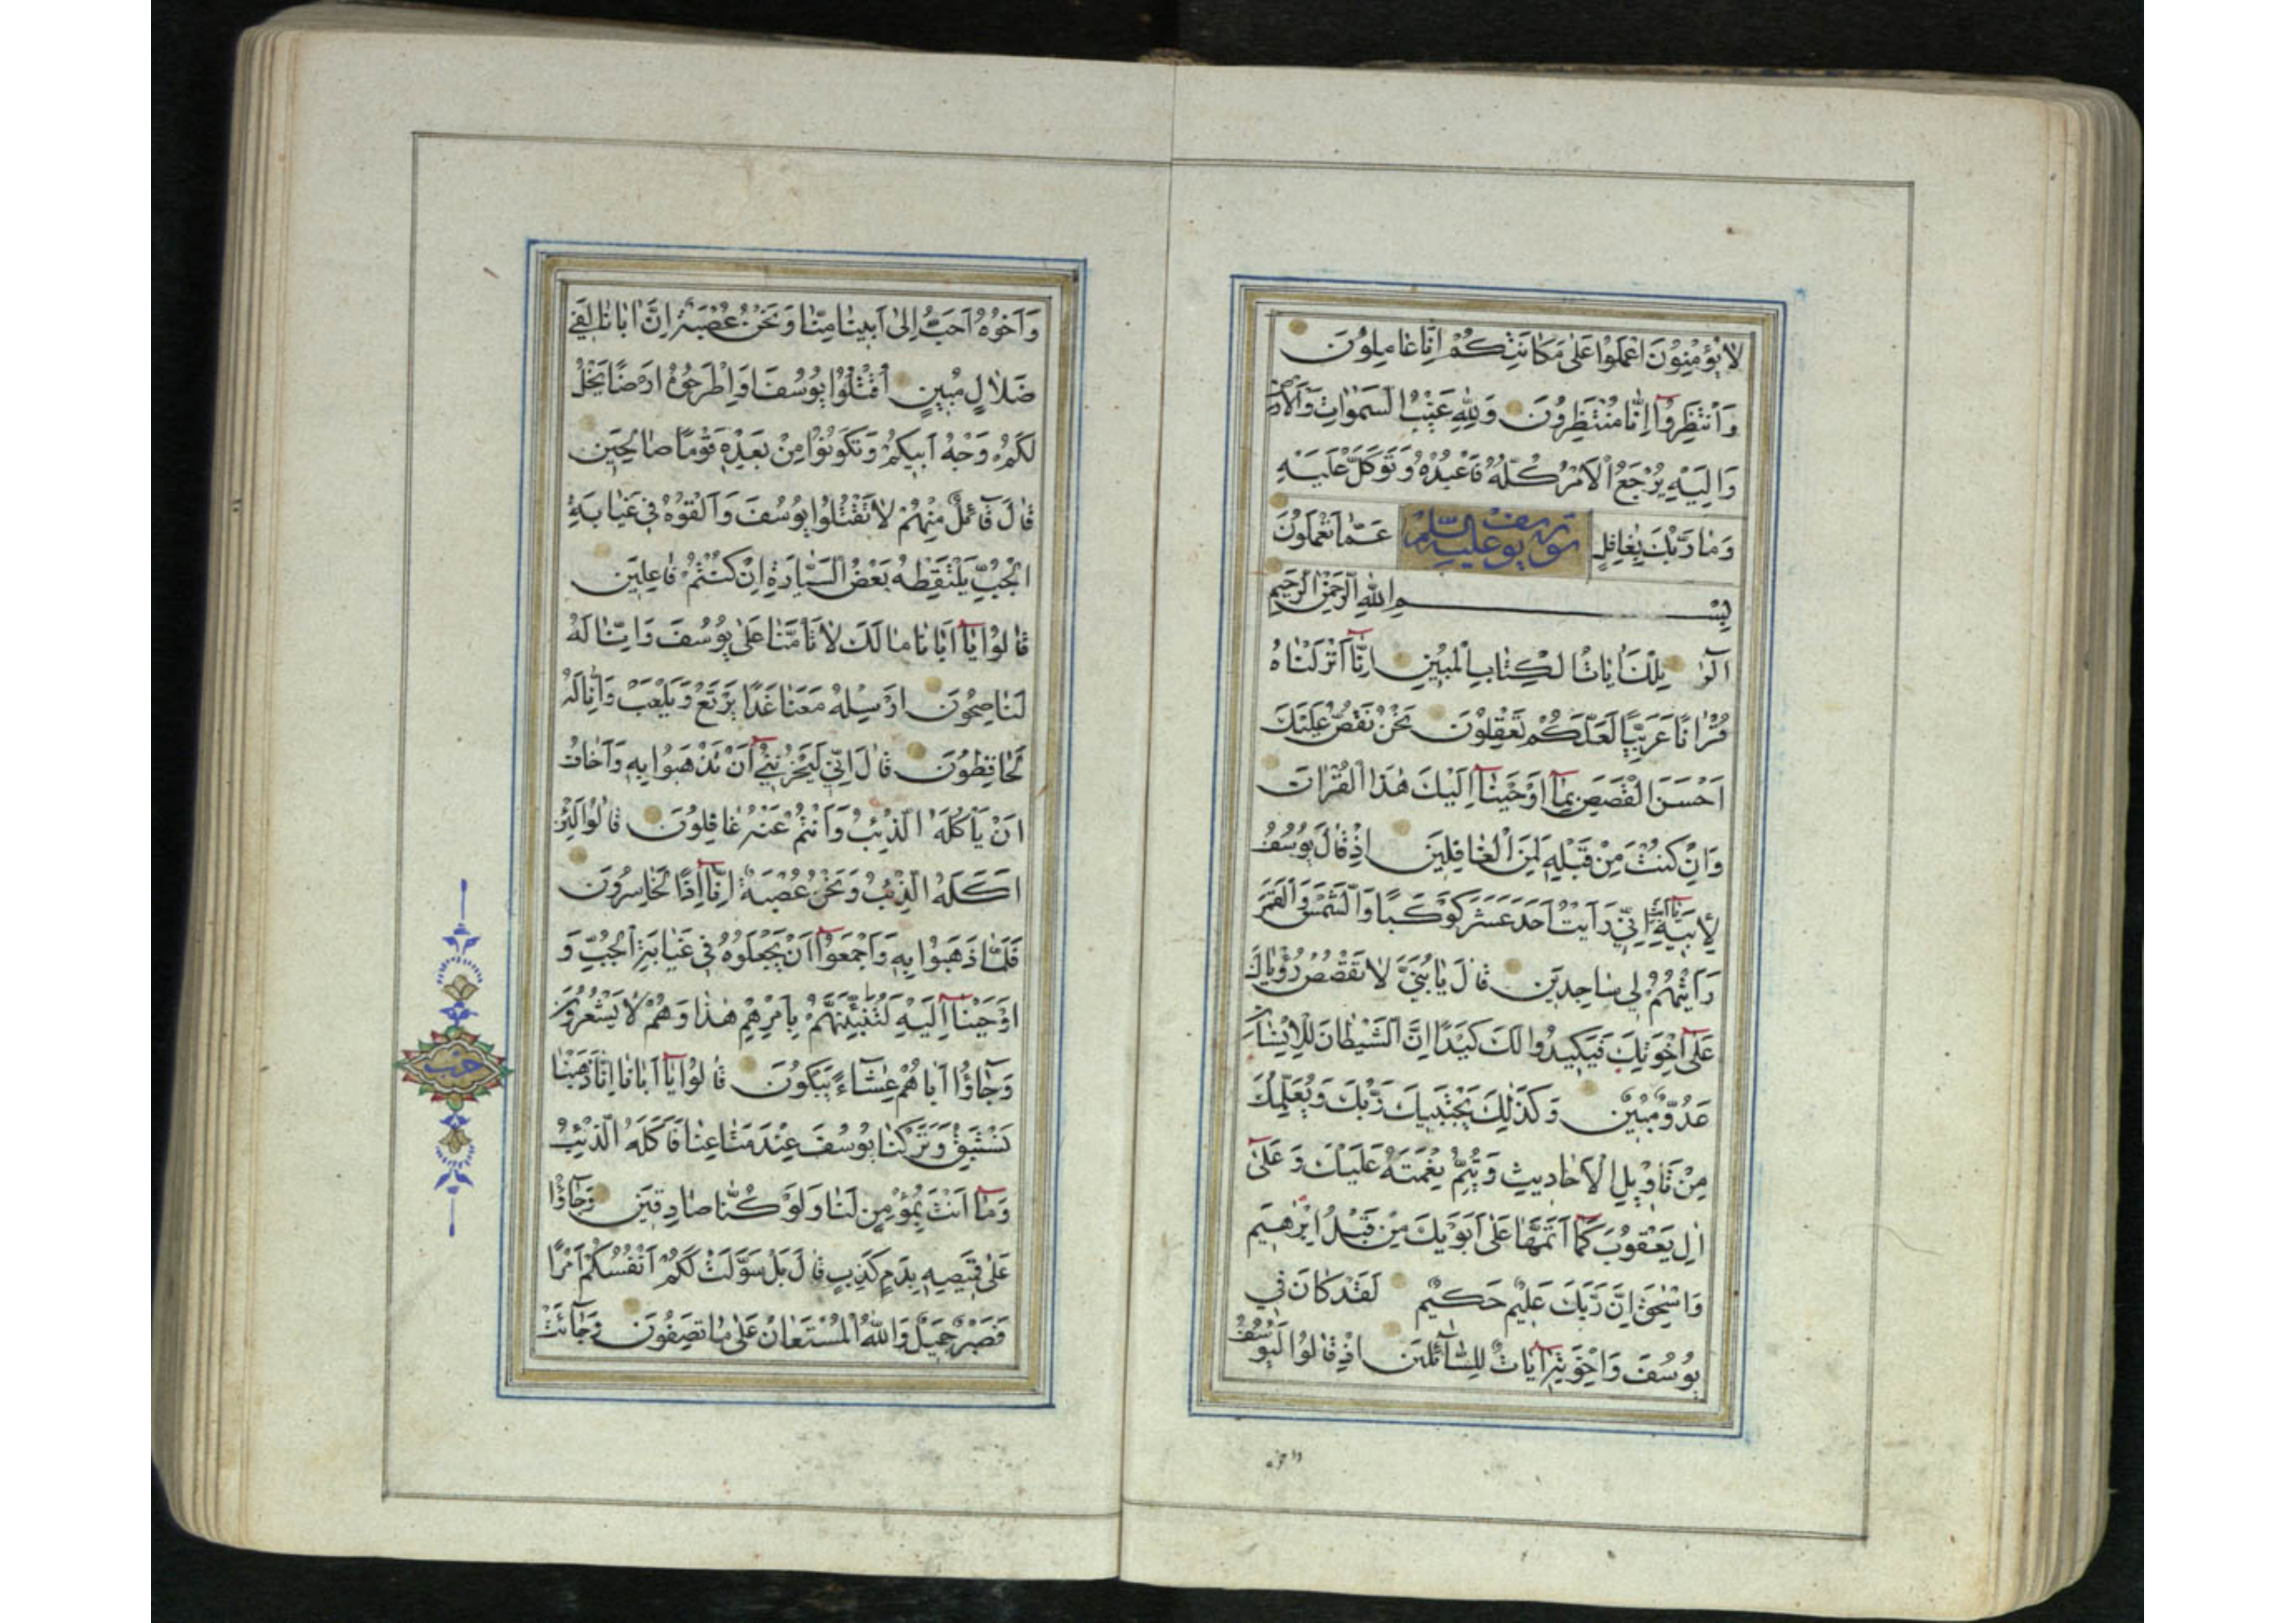 لَا يُؤْمِنُونَ اعْمَلُوا عَلَىٰ مَكَانَتِكُمْ إِنَّا عَامِلُونَ
وَانْتَظِرُوا إِنَّا مُنْتَظِرُونَ وَلِلَّهِ غَيْبُ السَّمٰوَاتِ وَالْأَرْضِ
وَإِلَيْهِ يُرْجَعُ الْأَمْرُ كُلُّهُ فَاعْبُدْهُ وَتَوَكَّلْ عَلَيْهِ
وَمَا رَبُّكَ بِغَافِلٍ عَمَّا تَعْمَلُونَ
سورة يوسف عليه السلم
بِسْمِ اللَّهِ الرَّحْمٰنِ الرَّحِيمِ
الٓرٰ تِلْكَ اٰيَاتُ الْكِتَابِ الْمُبِينِ إِنَّا أَنْزَلْنَاهُ
قُرْاٰنًا عَرَبِيًّا لَعَلَّكُمْ تَعْقِلُونَ نَحْنُ نَقُصُّ عَلَيْكَ
أَحْسَنَ الْقَصَصِ بِمَا أَوْحَيْنَا إِلَيْكَ هٰذَا الْقُرْاٰنَ
وَإِنْ كُنْتَ مِنْ قَبْلِهِ لَمِنَ الْغَافِلِينَ إِذْ قَالَ يُوسُفُ
لِأَبِيهِ يَا أَبَتِ إِنِّي رَأَيْتُ أَحَدَ عَشَرَ كَوْكَبًا وَالشَّمْسَ وَالْقَمَرَ
رَأَيْتُهُمْ لِي سَاجِدِينَ قَالَ يَا بُنَيَّ لَا تَقْصُصْ رُؤْيَاكَ
عَلَىٰ إِخْوَتِكَ فَيَكِيدُوا لَكَ كَيْدًا إِنَّ الشَّيْطَانَ لِلْإِنْسَانِ
عَدُوٌّ مُبِينٌ وَكَذٰلِكَ يَجْتَبِيكَ رَبُّكَ وَيُعَلِّمُكَ
مِنْ تَأْوِيلِ الْأَحَادِيثِ وَيُتِمُّ نِعْمَتَهُ عَلَيْكَ وَعَلَىٰ
اٰلِ يَعْقُوبَ كَمَا أَتَمَّهَا عَلَىٰ أَبَوَيْكَ مِنْ قَبْلُ إِبْرٰهِيمَ
وَإِسْحٰقَ إِنَّ رَبَّكَ عَلِيمٌ حَكِيمٌ لَقَدْ كَانَ فِي
يُوسُفَ وَإِخْوَتِهِ اٰيَاتٌ لِلسَّائِلِينَ إِذْ قَالُوا لَيُوسُفُ
وَأَخُوهُ أَحَبُّ إِلَىٰ أَبِينَا مِنَّا وَنَحْنُ عُصْبَةٌ إِنَّ أَبَانَا لَفِي
ضَلَالٍ مُبِينٍ اقْتُلُوا يُوسُفَ أَوِ اطْرَحُوهُ أَرْضًا يَخْلُ
لَكُمْ وَجْهُ أَبِيكُمْ وَتَكُونُوا مِنْ بَعْدِهِ قَوْمًا صَالِحِينَ
قَالَ قَائِلٌ مِنْهُمْ لَا تَقْتُلُوا يُوسُفَ وَأَلْقُوهُ فِي غَيَابَةِ
الْجُبِّ يَلْتَقِطْهُ بَعْضُ السَّيَّارَةِ إِنْ كُنْتُمْ فَاعِلِينَ
قَالُوا يَا أَبَانَا مَا لَكَ لَا تَأْمَنَّا عَلَىٰ يُوسُفَ وَإِنَّا لَهُ
لَنَاصِحُونَ أَرْسِلْهُ مَعَنَا غَدًا يَرْتَعْ وَيَلْعَبْ وَإِنَّا لَهُ
لَحَافِظُونَ قَالَ إِنِّي لَيَحْزُنُنِي أَنْ تَذْهَبُوا بِهِ وَأَخَافُ
أَنْ يَأْكُلَهُ الذِّئْبُ وَأَنْتُمْ عَنْهُ غَافِلُونَ قَالُوا لَئِنْ
أَكَلَهُ الذِّئْبُ وَنَحْنُ عُصْبَةٌ إِنَّا إِذًا لَخَاسِرُونَ
فَلَمَّا ذَهَبُوا بِهِ وَأَجْمَعُوا أَنْ يَجْعَلُوهُ فِي غَيَابَةِ الْجُبِّ وَ
أَوْحَيْنَا إِلَيْهِ لَتُنَبِّئَنَّهُمْ بِأَمْرِهِمْ هٰذَا وَهُمْ لَا يَشْعُرُونَ
وَجَاؤُا أَبَاهُمْ عِشَاءً يَبْكُونَ قَالُوا يَا أَبَانَا إِنَّا ذَهَبْنَا
نَسْتَبِقُ وَتَرَكْنَا يُوسُفَ عِنْدَ مَتَاعِنَا فَأَكَلَهُ الذِّئْبُ
وَمَا أَنْتَ بِمُؤْمِنٍ لَنَا وَلَوْ كُنَّا صَادِقِينَ وَجَاؤُا
عَلَىٰ قَمِيصِهِ بِدَمٍ كَذِبٍ قَالَ بَلْ سَوَّلَتْ لَكُمْ أَنْفُسُكُمْ أَمْرًا
فَصَبْرٌ جَمِيلٌ وَاللَّهُ الْمُسْتَعَانُ عَلَىٰ مَا تَصِفُونَ وَجَائَتْ
حزب